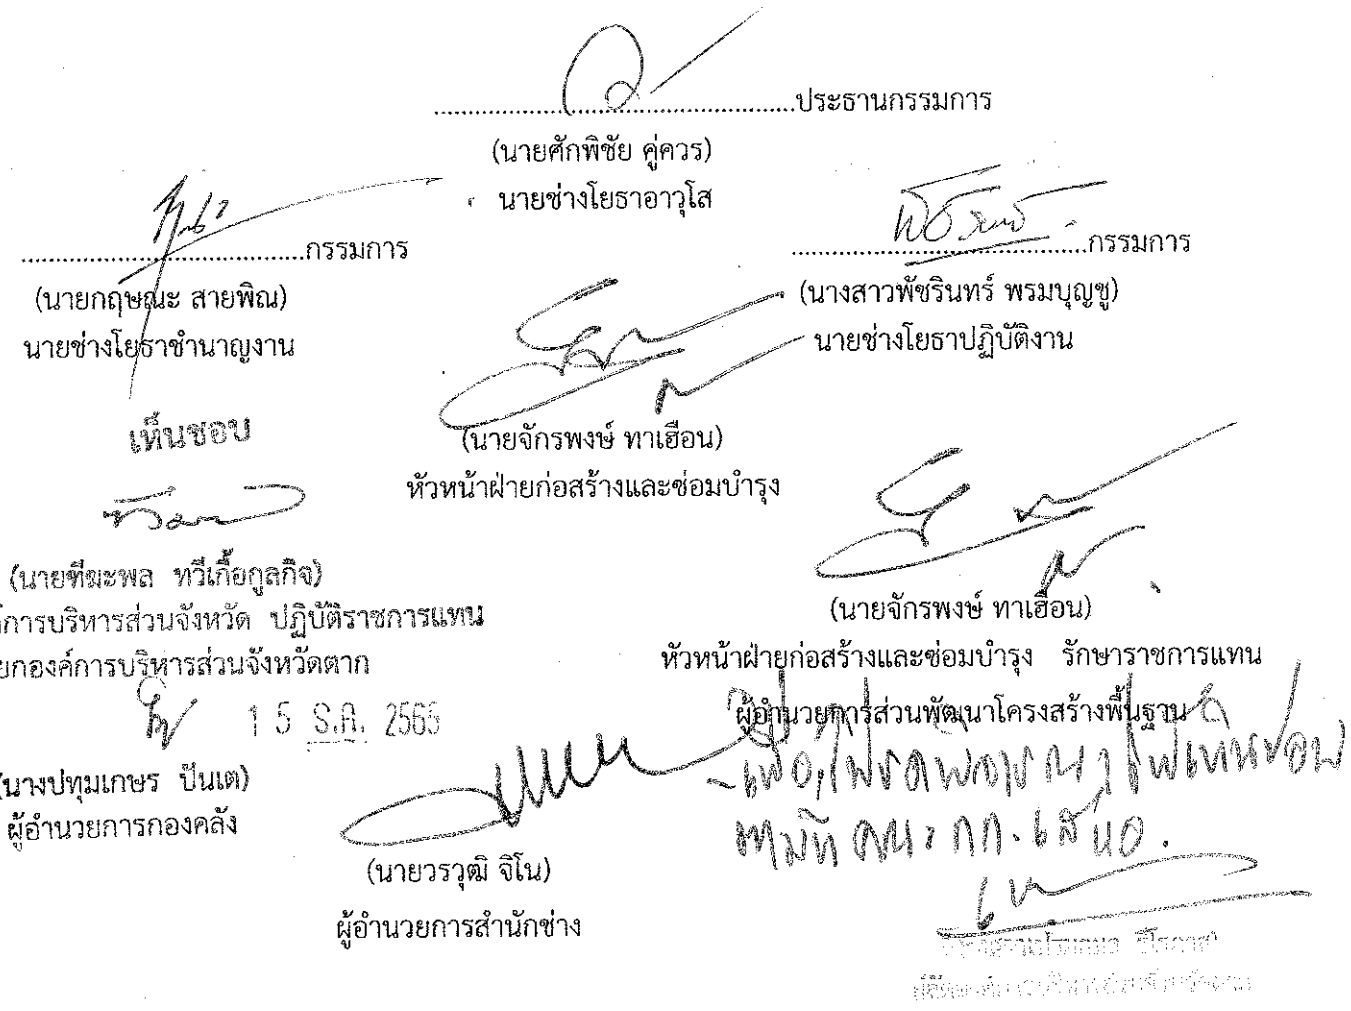 ประธานกรรมการ
(นายศักพิชัย คู่ควร)
นายช่างโยธาอาวุโส
กรรมการ
(นายกฤษณะ สายพิณ)
นายช่างโยธาชำนาญงาน
กรรมการ
(นางสาวพัชรินทร์ พรมบุญชู)
นายช่างโยธาปฏิบัติงาน
(นายจักรพงษ์ ทาเฮือน)
หัวหน้าฝ่ายก่อสร้างและซ่อมบำรุง
เห็นชอบ
(นายทีฆะพล ทวีเกื้อกูลกิจ)
การบริหารส่วนจังหวัด ปฏิบัติราชการแทน
ยกองค์การบริหารส่วนจังหวัดตาก
15 ธ.ค. 2565
(นางปทุมเกษร ปันเต)
ผู้อำนวยการกองคลัง
(นายจักรพงษ์ ทาเฮือน)
หัวหน้าฝ่ายก่อสร้างและซ่อมบำรุง รักษาราชการแทน
ผู้อำนวยการส่วนพัฒนาโครงสร้างพื้นฐาน
(นายวรวุฒิ จิโน)
ผู้อำนวยการสำนักช่าง
-เพื่อโปรดพิจารณาให้เห็นชอบ
ตามที่คณะ กก. เสนอ.